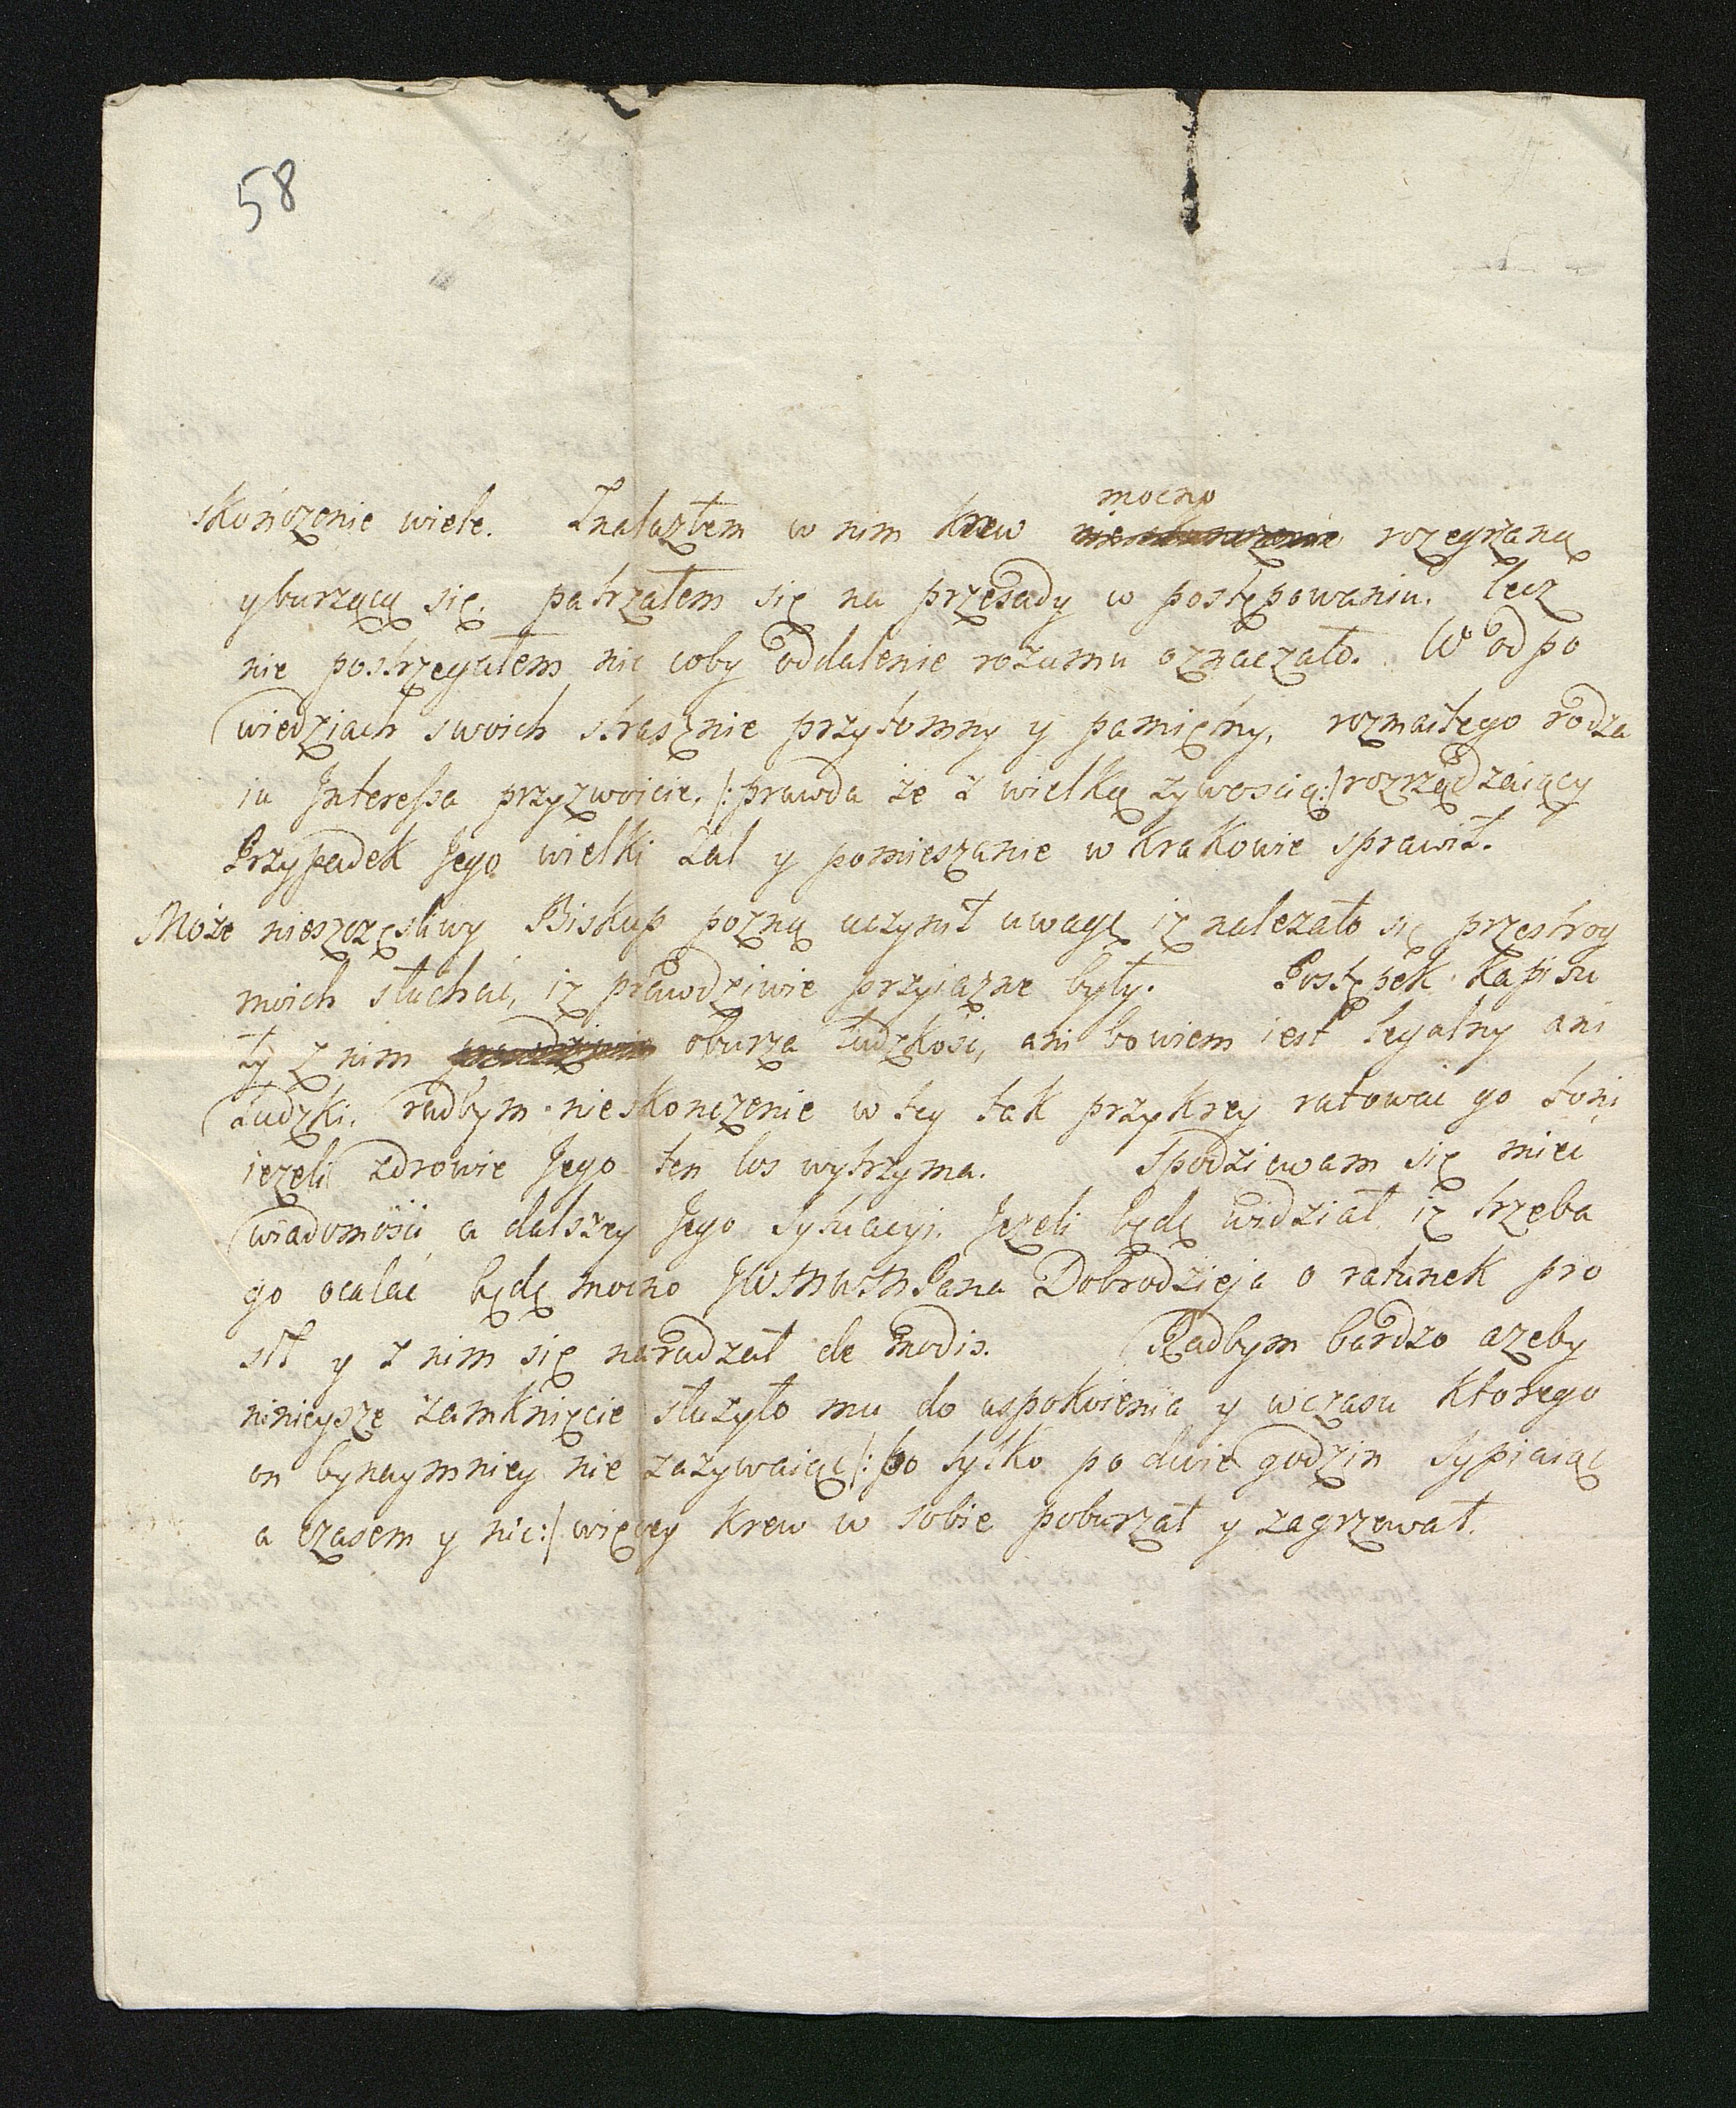 58
mocno
skończonie wiele. Znalazłem w nim krew nieskonczenie rozegrzaną
y burzącą się. patrzałem się na przesady w postępowaniu. lecz
nie postrzegałem nic coby oddalenie rozumu oznaczało. W odpo
wiedziach swoich strasznie przytomny y pamiętny, rozmaitego rodza
iu Interessa przyzwoicie, /: prawda że z wielką żywością :/ rozrządzaiący
Przypadek Jego wielki żal y pomieszanie w Krakowie sprawił.
Może nieszczęśliwy Biskup pozną uczynił uwagę iż należało się przestrog
moich słuchać, iż prawdziwie przyiazne były. Postępek Kapitu
ły z nim prawdziwie oburza ludzkość, ani bowiem iest legalny ani
ludzki. radbym nieskonczenie w tey tak przykrey ratować go toni
ieżeli zdrowie Jego ten los wytrzyma. Spodziewam się mieć
wiadomość a dalszey Jego sytuacyi. Jeżeli będę widział iż trzeba
go ocalać będę mocno JWWMWM Pana Dobrodzieja o ratunek pro
sił y z nim się naradzał de modis. Radbym bardzo ażeby
ninieysze zamknięcie służyło mu do uspokoienia y wczasu ktorego
on bynaymniey nie zażywaiąc /: bo tylko po dwie godzin sypiaiąc
a czasem y nic :/ więcey krew w sobie poburzał y zagrzewał.